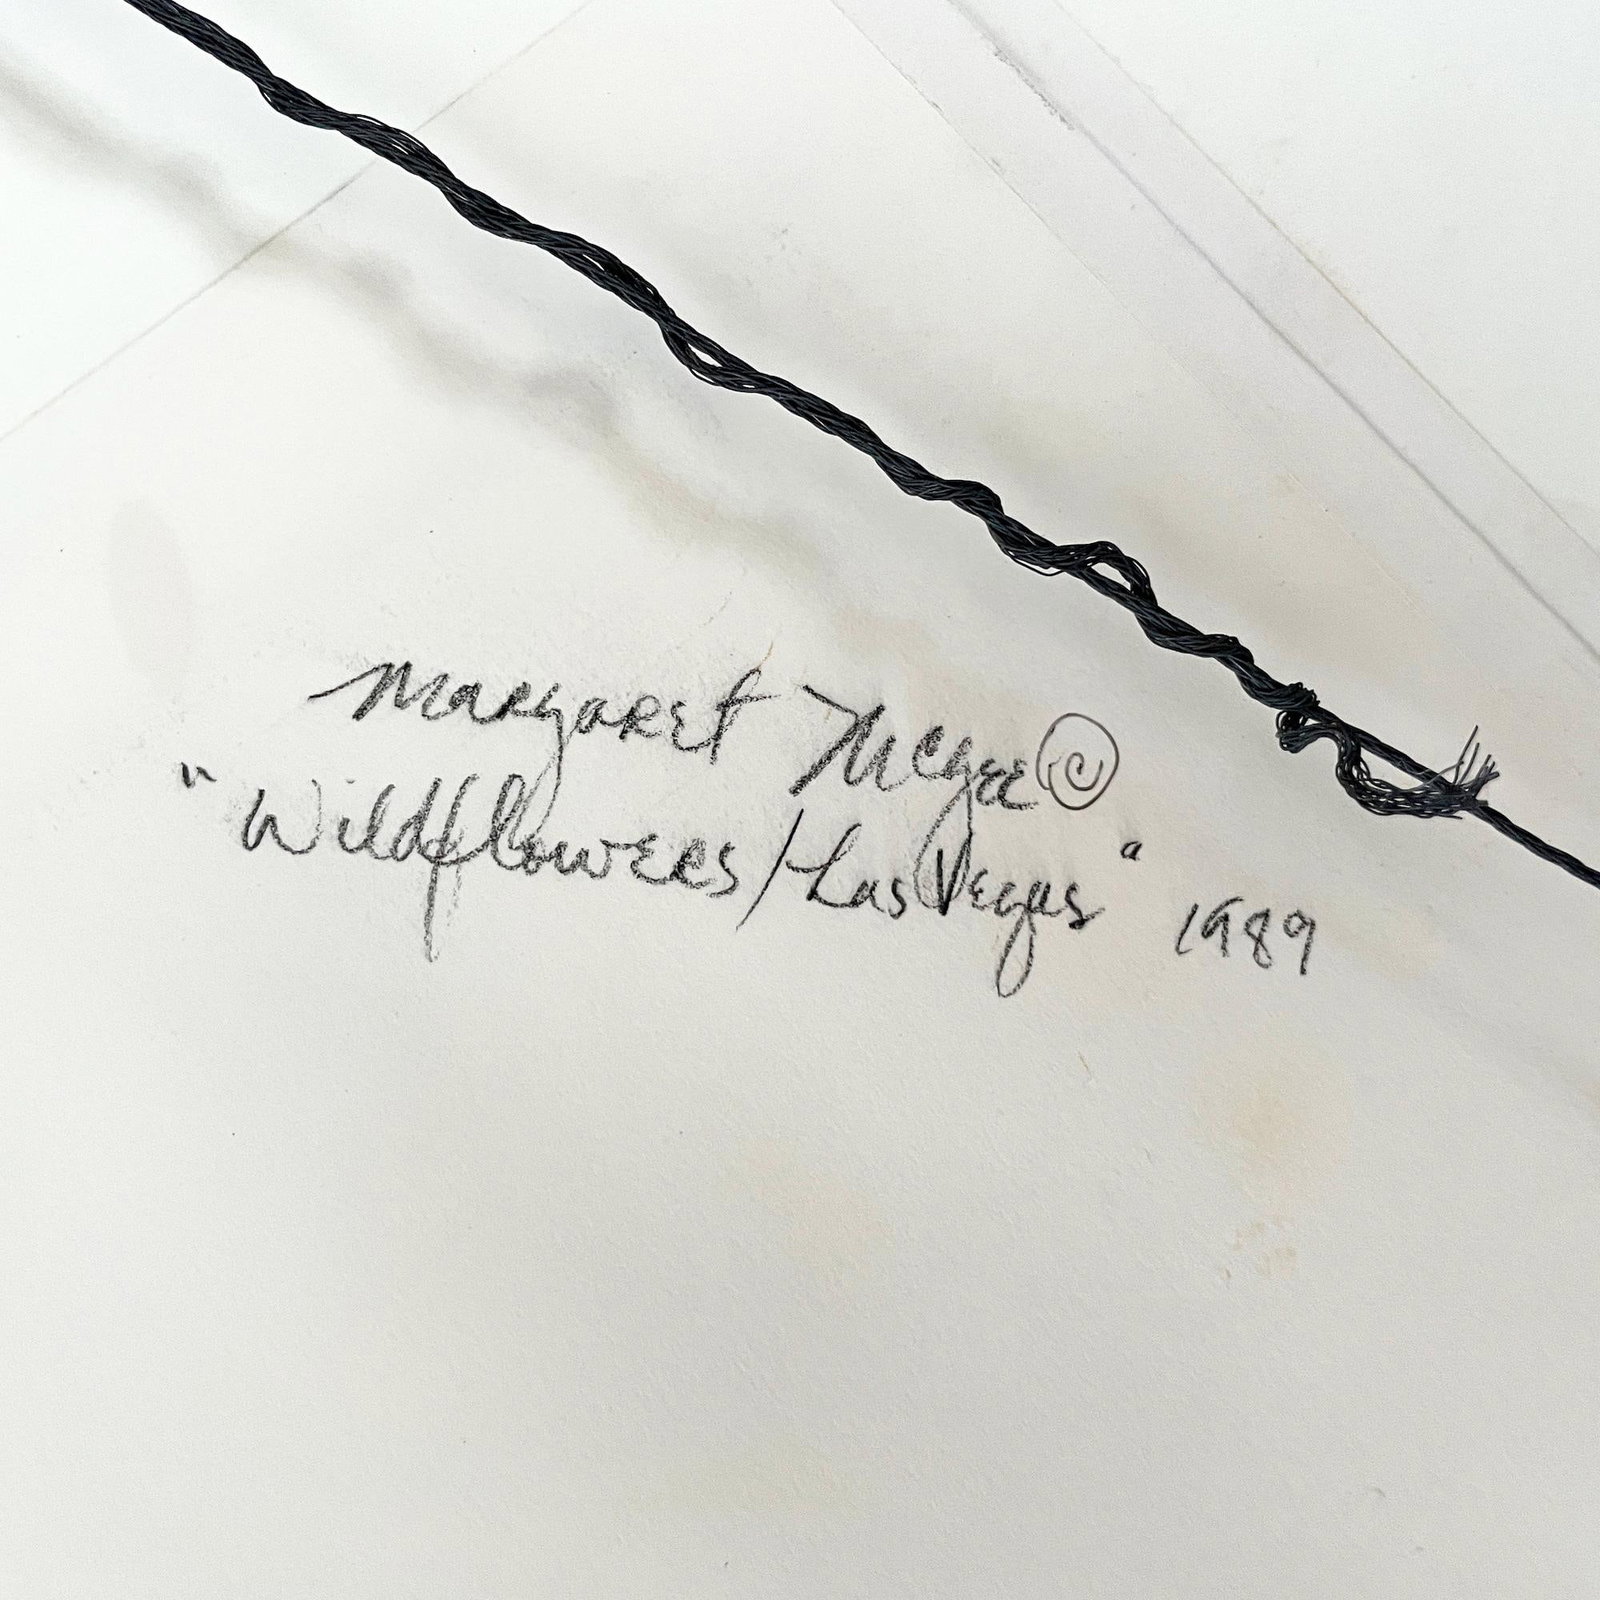 Margaret McGee ©
"Wildflowers/Las Vegas" 1989